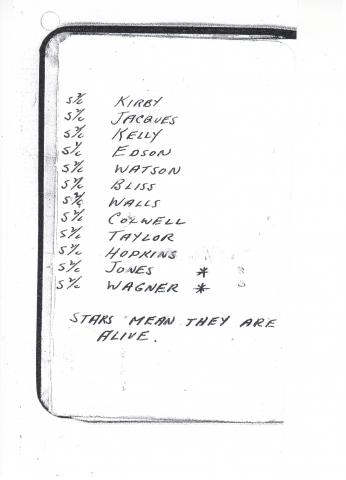 S2/c KIRBY
S2/c JACQUES
S2/c KELLY
S1/c EDSON
S2/c WATSON
S2/c BLISS
S2/c WALLS
S2/c COLWELL
S2/c TAYLOR
S2/c HOPKINS
S2/c JONES *
S2/c WAGNER *
STARS MEAN THEY ARE
ALIVE.